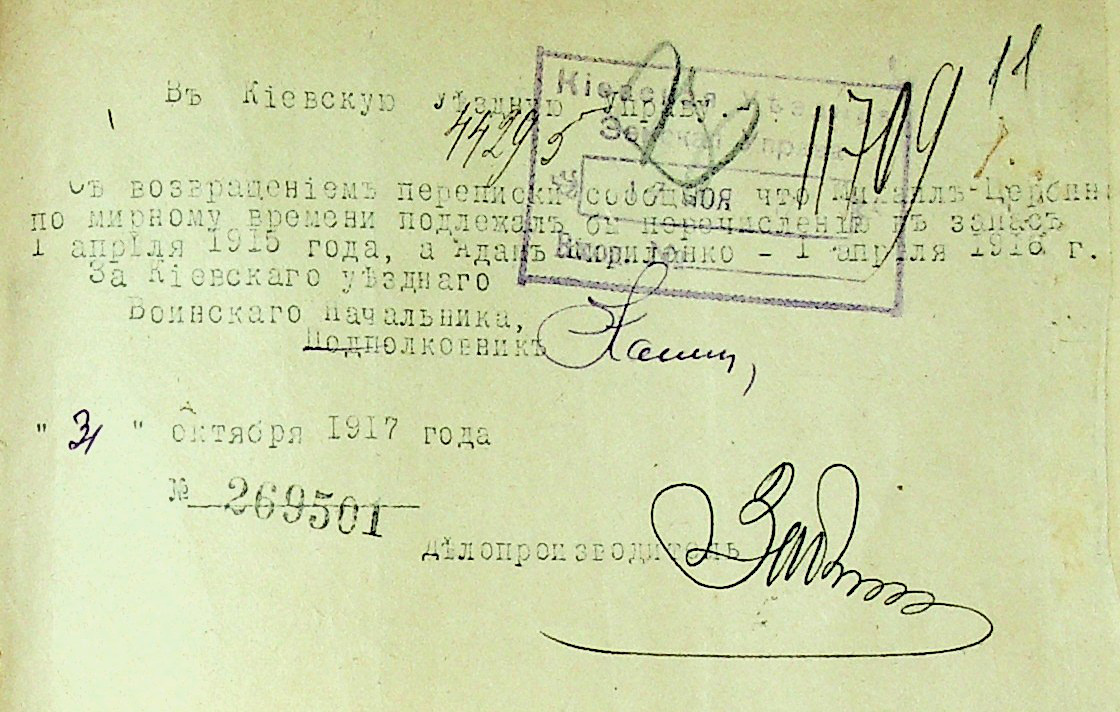 11
Въ Кіевскую Уѣздную Управу.
Кіевская Уѣздная
Земская Управа
44295
11709
Съ возвращеніемъ переписки сообщаю что Михаилъ Щербина
по мирному времени подлежалъ бы перечисленію въ запасъ
1 апрѣля 1915 года, а Адамъ - 1 апрѣля г.
За Кіевскаго уѣзднаго
Воинскаго Начальника,
Подполковникъ
" 31 " октября 1917 года
№ 269501
Дѣлопроизводитель